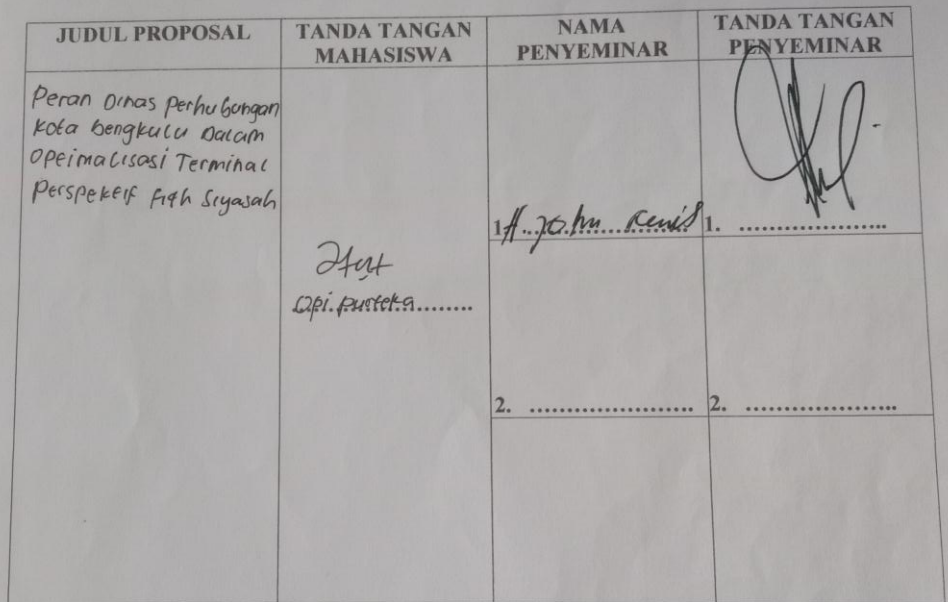 JUDUL PROPOSAL
TANDA TANGAN
MAHASISWA
NAMA
PENYEMINAR
TANDA TANGAN
PENYEMINAR
Peran Dinas Perhubungan
Kota bengkulu Dalam
Opeimalisasi Terminal
Perspekeif Fiqh Siyasah
1
1. ....................
........
2. ......................
2. ....................